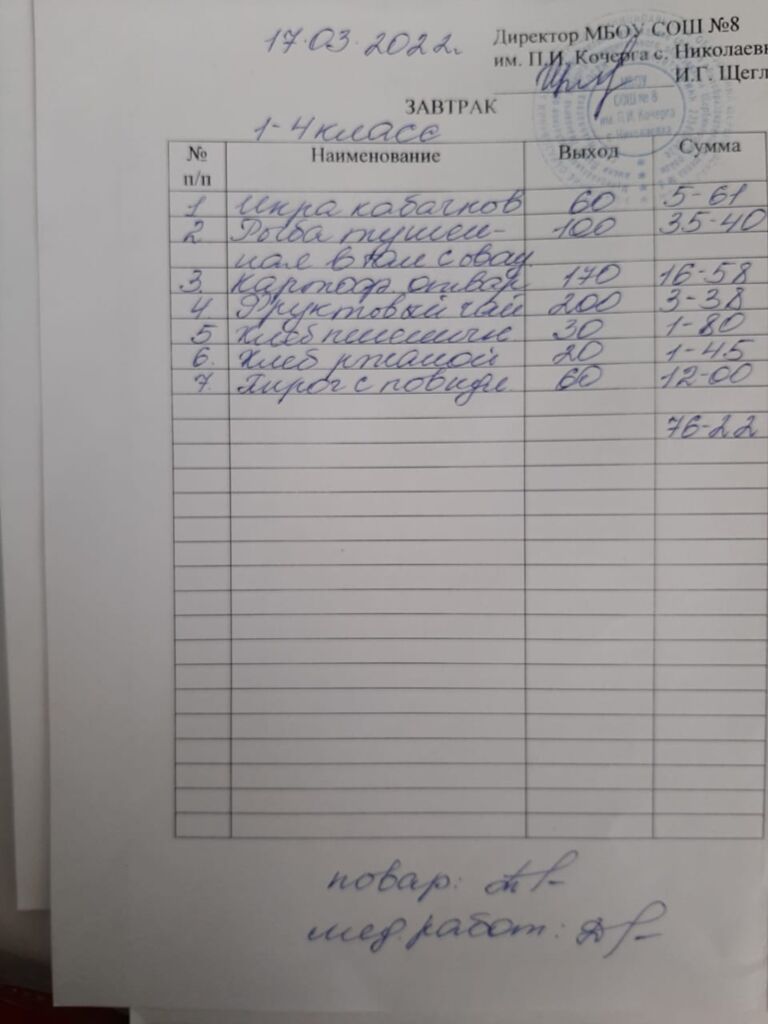 17.03.2022г.
Директор МБОУ СОШ №8
им. П.И. Кочерга с. Николаевк
И.Г. Щегл
МБОУ
СОШ № 8
им. П.И. Кочерга
с. Николаевка
ЗАВТРАК
1-4 класс
№ п/п Наименование Выход Сумма
1 Икра кабачков 60 5-61
2 Рыба тушен- 100 35-40
ная в том с овощ
3. Картоф. отвар 170 16-58
4. Фруктовый чай 200 3-38
5 Хлеб пшеничн 30 1-80
6. Хлеб ржаной 20 1-45
7. Пирог с повидл 60 12-00
76-22
повар:
мед. работ: